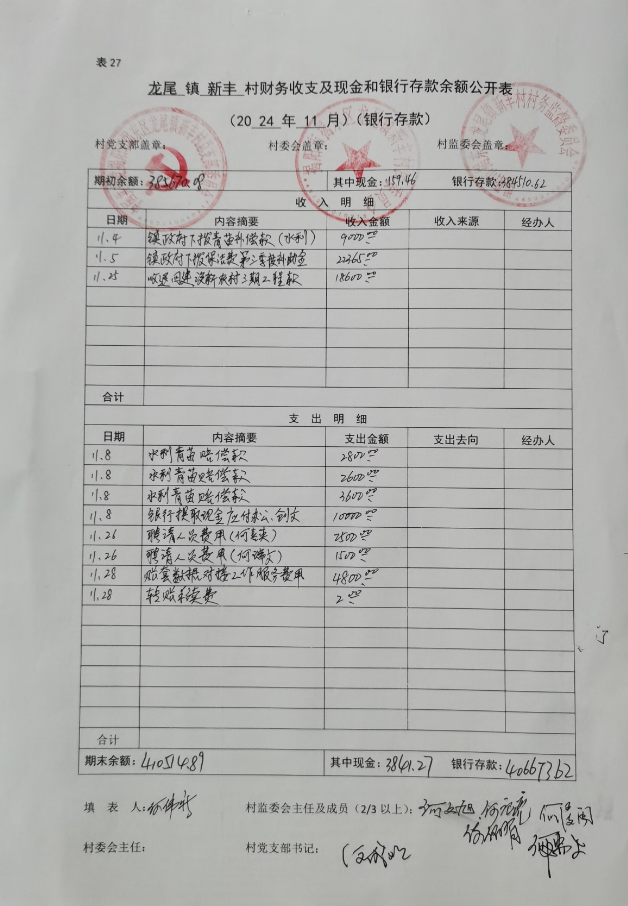 表 27
龙尾 镇 新丰 村财务收支及现金和银行存款余额公开表
（20 24 年 11 月）（银行存款）
村党支部盖章： 村委会盖章： 村监委会盖章：
期初余额：385670.08 其中现金：1159.46 银行存款：384510.62
收 入 明 细
日期 内容摘要 收入金额 收入来源 经办人
11.4 镇政府下拨青苗补偿款（水利） 9000.00
11.5 镇政府下拨保洁费第三季度补助金 22365.00
11.25 18600.00
合计
支 出 明 细
日期 内容摘要 支出金额 支出去向 经办人
11.8 水利青苗赔偿款 2800.00
11.8 水利青苗赔偿款 2600.00
11.8 水利青苗赔偿款 3600.00
11.8 银行提取现金 10000.00
11.26 聘请人员费用 2500.00
11.26 聘请人员费用 1500.00
11.28 账套数据对接工作服务费用 4800.00
11.28 转账手续费 2.00
合计
期末余额：410514.89 其中现金：3841.27 银行存款：406673.62
填 表 人： 村监委会主任及成员（2/3 以上）：
村委会主任： 村党支部书记：